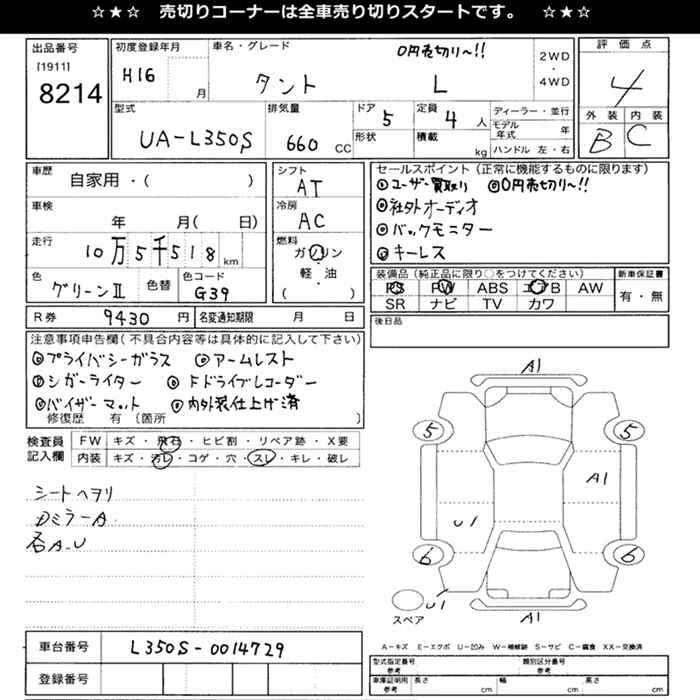 ☆★☆ 売切りコーナーは全車売り切りスタートです。 ☆★☆
出品番号
[1911]
8214
初度登録年月
H16 月
車名・グレード
タント L
0円売切り〜!!
2WD
・
4WD
評価点
4
外装 内装
B C
型式
UA-L350S
排気量
660 CC
ドア
5
形状
定員
4 人
積載
kg
ディーラー・並行
モデル年式 年
ハンドル 左・右
車歴
自家用・( )
車検
年 月( 日)
走行
10万5千518 km
色
グリーンⅡ
色替
色コード
G39
シフト
AT
冷房
AC
燃料
ガソリン
軽・油
( )
セールスポイント(正常に機能するものに限ります)
◎ユーザー買取り ◎0円売切り〜!!
◎社外オーディオ
◎バックモニター
◎キーレス
装備品(純正品に限り○をつけてください)
PS PW ABS エアB AW
SR ナビ TV カワ
新車保証書
有・無
R券 9430 円
名変通知期限 月 日
後日品
注意事項申告欄(不具合内容等は具体的に記入して下さい)
◎プライバシーガラス ◎アームレスト
◎シガーライター ◎ドライブレコーダー
◎バイザーマット ◎内外装仕上げ済
修復歴 有〔箇所 〕
検査員記入欄
FW キズ・飛石・ヒビ割・リペア跡・X要
内装 キズ・汚レ・コゲ・穴・スレ・キレ・破レ
シートヘタリ
DミラーA
右A.U
A1
5
5
A1
U1
6
6
U1
スペア
A1
A-キズ E-エクボ U-凹み W-補修跡 S-サビ C-腐食 XX-交換済
車台番号 L350S-0014729
登録番号
型式指定番号
参考
類別区分番号
参考
車庫証明用
参考
長さ cm
幅 cm
高さ cm